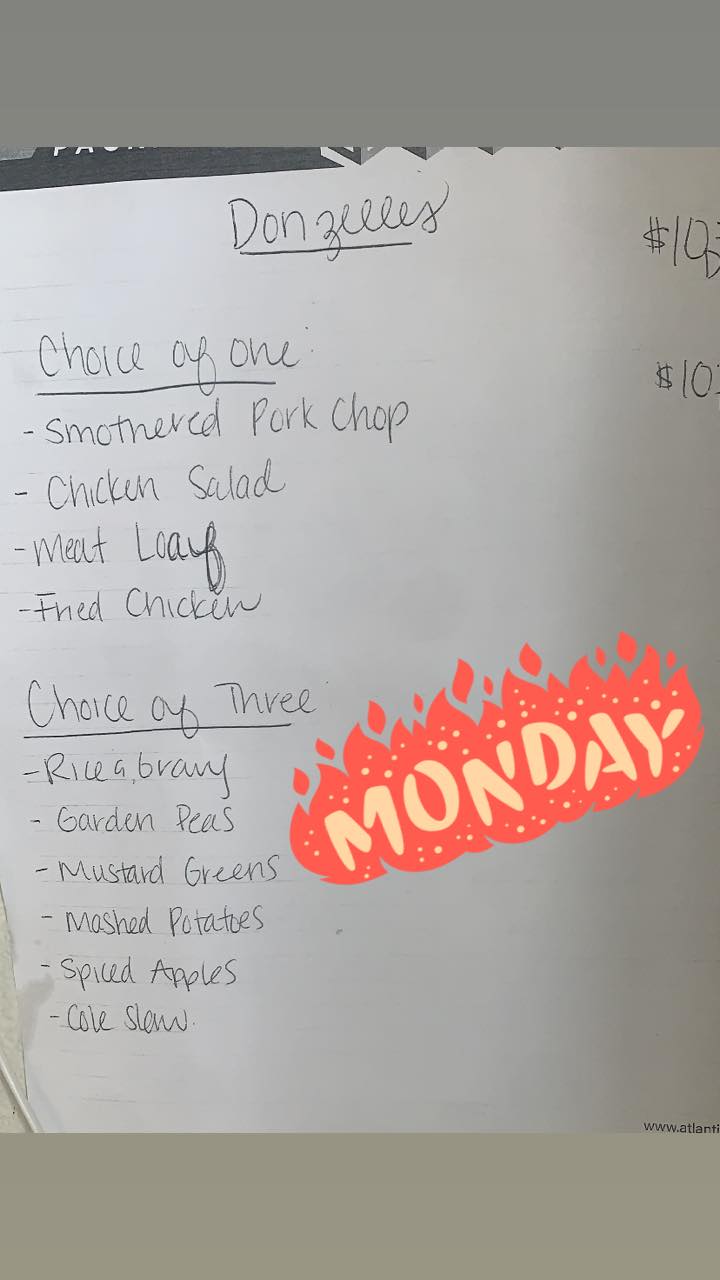 Donzelles
$10
Choice of one:
$10
- Smothered Pork Chop
- Chicken Salad
- Meat Loaf
- Fried Chicken
Choice of Three
- Rice & Gravy
- Garden Peas
- Mustard Greens
- Mashed Potatoes
- Spiced Apples
- Cole Slaw
MONDAY
www.atlanti